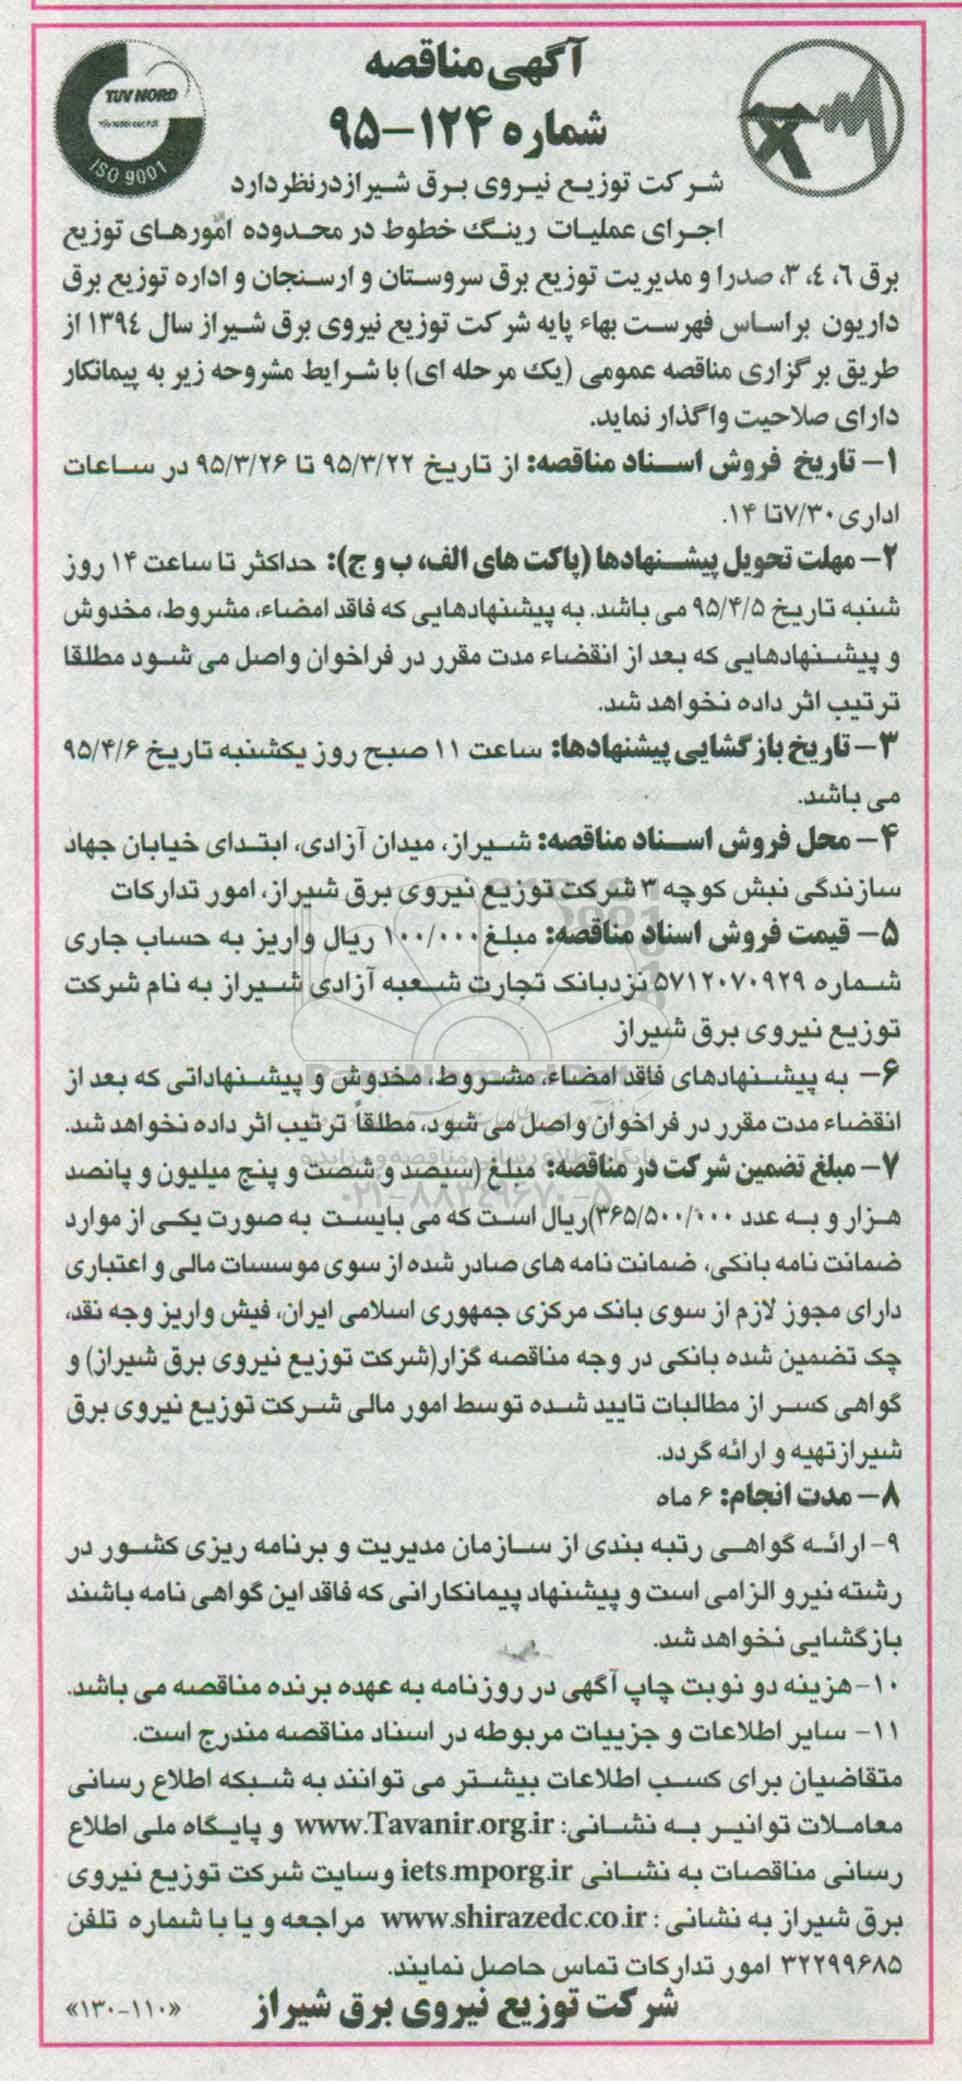 آگهی مناقصه
شماره ۱۲۴-۹۵
TUV NORD
ISO 9001
شرکت توزیع نیروی برق شیراز درنظر دارد
اجرای عملیات رینگ خطوط در محدوده امورهای توزیع
برق ۶، ۴، ۳، صدرا و مدیریت توزیع برق سروستان و ارسنجان و اداره توزیع برق
داریون براساس فهرست بهاء پایه شرکت توزیع نیروی برق شیراز سال ۱۳۹۴ از
طریق برگزاری مناقصه عمومی (یک مرحله ای) با شرایط مشروحه زیر به پیمانکار
دارای صلاحیت واگذار نماید.
۱- تاریخ فروش اسناد مناقصه: از تاریخ ۹۵/۳/۲۲ تا ۹۵/۳/۲۶ در ساعات
اداری ۷/۳۰ تا ۱۴.
۲- مهلت تحویل پیشنهادها (پاکت های الف، ب و ج): حداکثر تا ساعت ۱۴ روز
شنبه تاریخ ۹۵/۴/۵ می باشد. به پیشنهادهایی که فاقد امضاء، مشروط، مخدوش
و پیشنهادهایی که بعد از انقضاء مدت مقرر در فراخوان واصل می شود مطلقا
ترتیب اثر داده نخواهد شد.
۳- تاریخ بازگشایی پیشنهادها: ساعت ۱۱ صبح روز یکشنبه تاریخ ۹۵/۴/۶
می باشد.
۴- محل فروش اسناد مناقصه: شیراز، میدان آزادی، ابتدای خیابان جهاد
سازندگی نبش کوچه ۳ شرکت توزیع نیروی برق شیراز، امور تدارکات
۵- قیمت فروش اسناد مناقصه: مبلغ ۱۰۰/۰۰۰ ریال واریز به حساب جاری
شماره ۵۷۱۲۰۷۰۹۲۹ نزدبانک تجارت شعبه آزادی شیراز به نام شرکت
توزیع نیروی برق شیراز
۶- به پیشنهادهای فاقد امضاء، مشروط، مخدوش و پیشنهاداتی که بعد از
انقضاء مدت مقرر در فراخوان واصل می شود، مطلقاً ترتیب اثر داده نخواهد شد.
پایگاه اطلاع رسانی مناقصه و مزایده
۷- مبلغ تضمین شرکت در مناقصه: مبلغ (سیصد و شصت و پنج میلیون و پانصد
۰۲۱-۸۸۳۴۹۶۷۰-۵
هزار و به عدد ۳۶۵/۵۰۰/۰۰۰)ریال است که می بایست به صورت یکی از موارد
ضمانت نامه بانکی، ضمانت نامه های صادر شده از سوی موسسات مالی و اعتباری
دارای مجوز لازم از سوی بانک مرکزی جمهوری اسلامی ایران، فیش واریز وجه نقد،
چک تضمین شده بانکی در وجه مناقصه گزار(شرکت توزیع نیروی برق شیراز) و
گواهی کسر از مطالبات تایید شده توسط امور مالی شرکت توزیع نیروی برق
شیراز تهیه و ارائه گردد.
۸- مدت انجام: ۶ ماه
۹- ارائه گواهی رتبه بندی از سازمان مدیریت و برنامه ریزی کشور در
رشته نیرو الزامی است و پیشنهاد پیمانکارانی که فاقد این گواهی نامه باشند
بازگشایی نخواهد شد.
۱۰- هزینه دو نوبت چاپ آگهی در روزنامه به عهده برنده مناقصه می باشد.
۱۱- سایر اطلاعات و جزییات مربوطه در اسناد مناقصه مندرج است.
متقاضیان برای کسب اطلاعات بیشتر می توانند به شبکه اطلاع رسانی
معاملات توانیر به نشانی: www.Tavanir.org.ir و پایگاه ملی اطلاع
رسانی مناقصات به نشانی iets.mporg.ir وسایت شرکت توزیع نیروی
برق شیراز به نشانی: www.shirazedc.co.ir مراجعه و یا با شماره تلفن
۳۲۲۹۹۶۸۵ امور تدارکات تماس حاصل نمایند.
شرکت توزیع نیروی برق شیراز
«۱۳۰-۱۱۰»